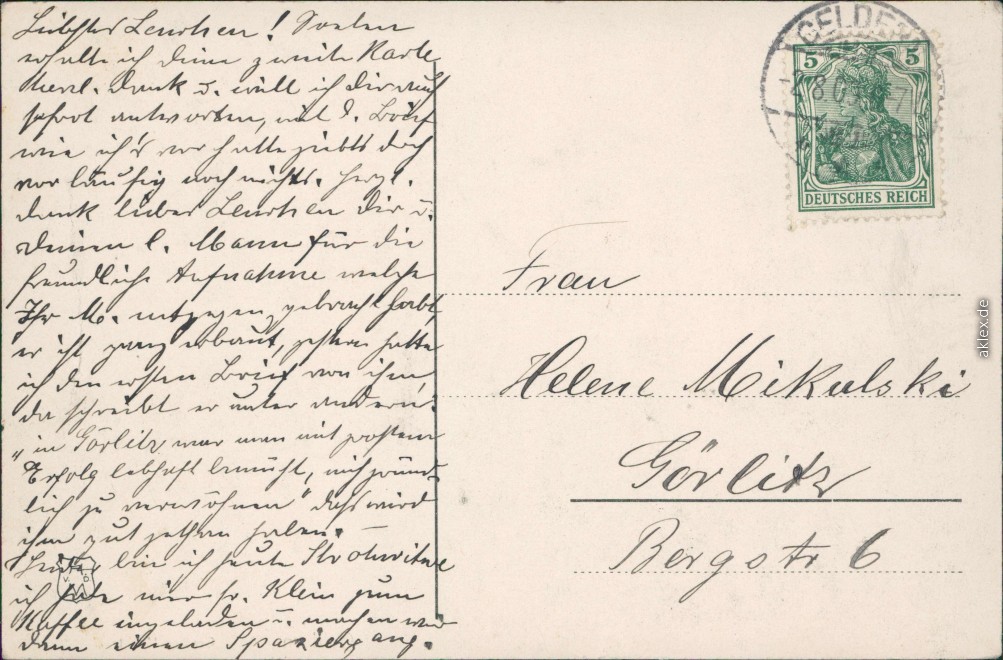 Liebstes Lenchen! Soeben
erhalte ich Deine zweite Karte
herzl. Dank u. will ich Dir auch
sofort antworten, mit d. Brief
wie ich's vor hatte giebts doch
vorläufig noch nichts. Herzl.
Dank liebes Lenchen Dir u.
Deinem l. Mann für die
freundliche Aufnahme welche
Ihr M. entgegen gebracht habt,
er ist ganz erbaut, gestern hatte
ich den ersten Brief von ihm,
da schreibt er unter anderm:
"in Görlitz war man mit großem
Erfolg lebhaft bemüht, mich gründ-
lich zu verwöhnen" das wird
ihm gut gethan haben. –
bin ich heute Strohwitwe
ich habe mir Fr. Klein zum
Kaffee eingeladen u. machen wir
dann einen Spaziergang.
GELDER
5 5
DEUTSCHES REICH
Frau
Helene Mikulski
Görlitz
Bergstr 6
aklex.de